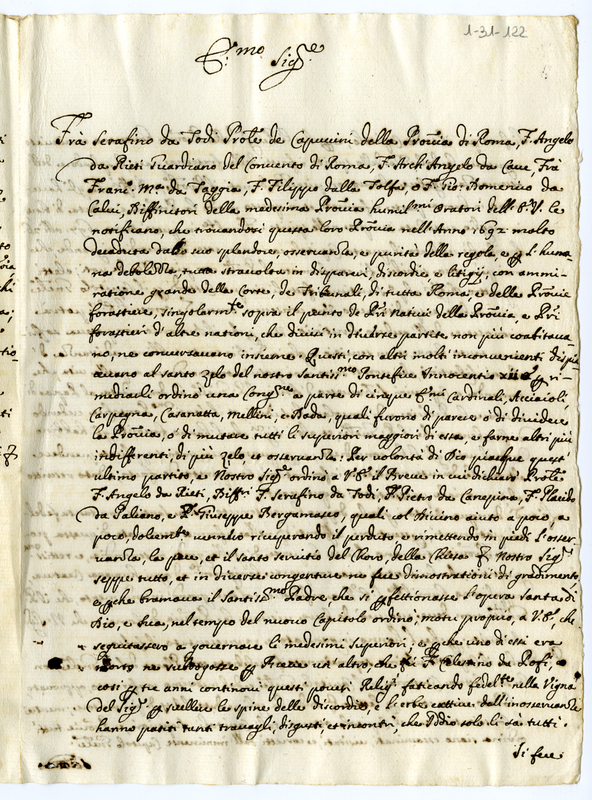 1-31-122
E.mo Sig.re
Frà Serafino da Todi Prõle de Capuccini della Provĩa di Roma, F. Angelo
da Rieti Guardiano del Convento di Roma, F. Arch Angelo da Cave, Frà
Franc.o M.a da Taggia, F. Filippo dalle Tolfa, e F. Gio: Domenico da
Calvi, Diffinitori della medesima Provĩa humil.mi Oratori dell' E. V. le
notificano, che trovandosi questa loro Provĩa nell'Anno 1692 molto
decaduta dal suo splendore, osservanza, e purità della regola, e ꝑ l'huma
na debolezza, tutta stravolta in dispareri, discordie e litigij; con ammi-
ratione grande della Corte, de Tribunali, di tutta Roma, e della Provĩe
forastiere, singolarm.te sopra il punto de Pri nativi della Provĩa, e Pri
forastieri d'altre nationi, che divisi in diverse partite non più coabitava-
no, ne conversavano insieme. Questi, con altri molti inconvenienti dispia
cevano al santo zelo del nostro Santis.mo Pontefice Innocentio XII ꝑ ri-
mediarli ordinò una Cong.ne a parte di cinque E.mi Cardinali, Acciaioli,
Carpegna, Casanatta, Mellini, e Bada, quali furono di parere ò di dividere
la Provĩa, ò di mutare tutti li superiori maggiori di essa, e farne altri più
indifferenti, di più zelo, et osservanza: Per volontà di Dio piacque quest'
ultimo partito, e Nostro Sig.re ordinò a V. E. il Breve in cui dichiarò Prõle
F. Angelo da Rieti, Diff.ri F. Serafino da Todi, F. Pietro da Canepina, F. Placido
da Paliano, e F. Giuseppe Bergamasco, quali col Divino aiuto a poco, a
poco, ricuperando il perduto, e rimettendo in piedi l'osser
vanza, la pace, et il santo servitio del Choro, della Chiesa Nostro Sig.re
seppe tutto, et in diverse congenture ne fece dimostrationi di gradimento
e ꝑche bramava il Santis.mo Padre, che si ꝑfettionasse l'opera santa di
Dio, e sua, nel tempo del nuovo Capitolo ordinò, motu proprio, a V. E., che
seguitassero a governare li medesimi Superiori, e ꝑche uno di essi era
morto ne surrogasse ꝑ Breve un'altro, che fù F. Celestino da Rofi,
così ꝑ tre anni continovi questi poveri Relig.i faticando fedel.te nella Vigna
del Sig.re ꝑ svellere le spine delle discordie, e l'erbe cattive dell'inosservanza
hanno patiti tanti travagli, disgusti, et incontri, che Iddio solo li sà tutti.
Si fece